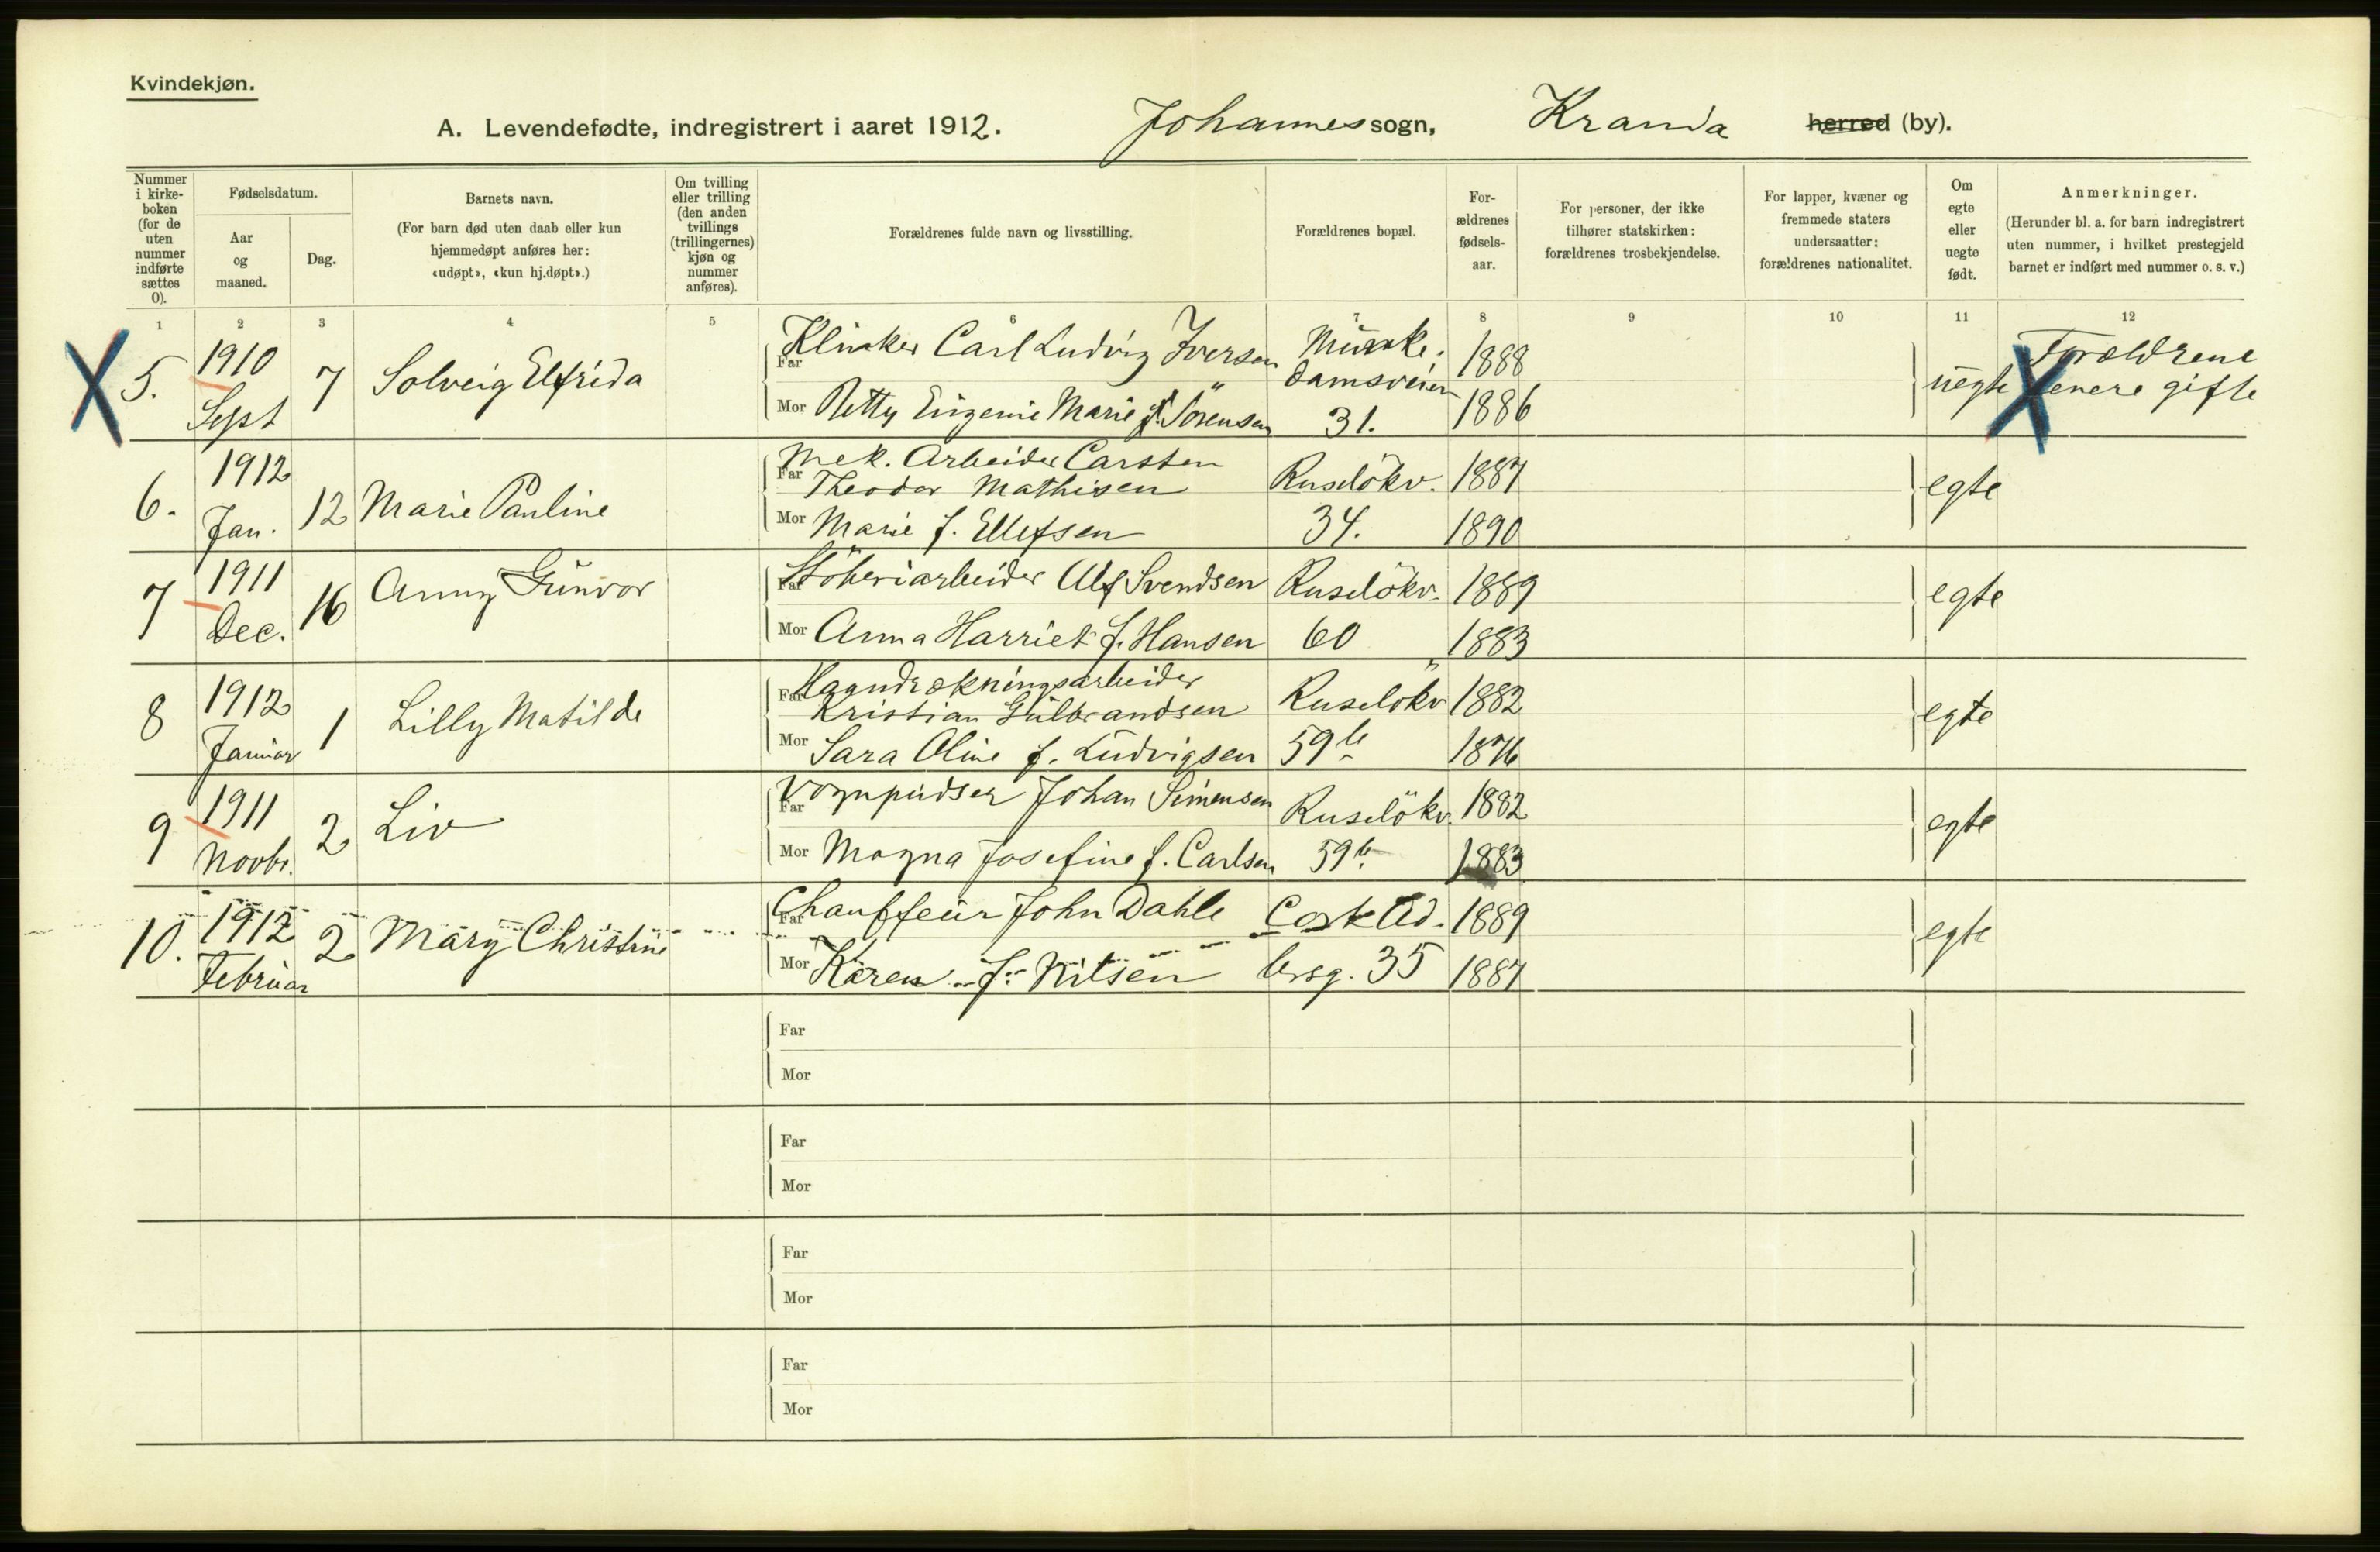 Kvindekjøn.
A. Levendefødte, indregistrert i aaret 1912. Johannes sogn, Krania herred (by).
Nummer i kirke-boken (for de uten nummer indførte sættes 0).
Fødselsdatum.
Aar og maaned.
Dag.
Barnets navn.
(For barn død uten daab eller kun hjemmedøpt anføres her: «udøpt», «kun hj.døpt».)
Om tvilling eller trilling (den anden tvillings (trillingernes) kjøn og nummer anføres).
Forældrenes fulde navn og livsstilling.
Forældrenes bopæl.
For-ældrenes fødsels-aar.
For personer, der ikke tilhører statskirken: forældrenes trosbekjendelse.
For lapper, kvæner og fremmede staters undersaatter: forældrenes nationalitet.
Om egte eller uegte født.
Anmerkninger.
(Herunder bl. a. for barn indregistrert uten nummer, i hvilket prestegjeld barnet er indført med nummer o. s. v.)
1 2 3 4 5 6 7 8 9 10 11 12
X 5. 1910 Sept 7 Solveig Elfrida
Far Klinker Carl Ludvig Iversen Munke. 1888
Mor Netty Eugenie Marie f. Sörensen damsveien 31. 1886
uegte X Forældrene senere gifte
6. 1912 Jan. 12 Marie Pauline
Far Mek. Arbeider Carsten Theodor Mathisen Ruselökv. 1887
Mor Marie f. Ellefsen 34. 1890
egte
7 1911 Dec. 16 Anny Gunvor
Far Stöberiarbeider Alf Svendsen Ruselökv. 1889
Mor Anna Harriet f. Hansen 60 1883
egte
8 1912 Januar 1 Lilly Matilde
Far Haandrækningsarbeider Kristian Gulbrandsen Ruselökv 1882
Mor Sara Oline f. Ludvigsen 59 b 1876
egte
9 1911 Novbr. 2 Liv
Far Vognpudser Johan Simensen Ruselökv. 1882
Mor Magna Josefine f. Carlsen 59 b. 1883
egte
10. 1912 Februar 2 Mary Christine
Far Chauffeur John Dahle Cort Ad. 1889
Mor Karen f. Nilsen lersg. 35 1887
egte
Far
Mor
Far
Mor
Far
Mor
Far
Mor